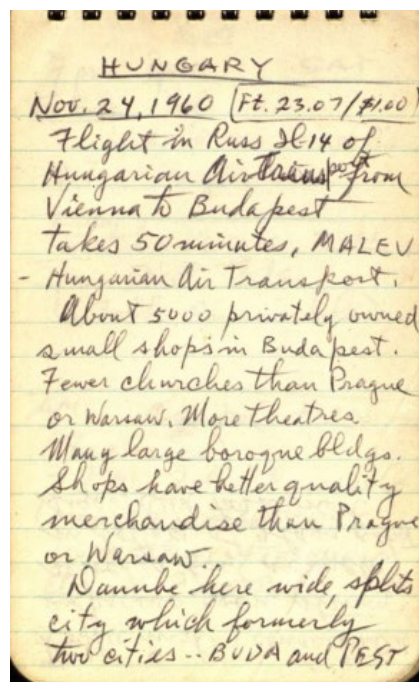 HUNGARY
Nov. 24, 1960 Ft. 23.07/$1.00
Flight in Russ Il-14 of
Hungarian Air Transport from
Vienna to Budapest
takes 50 minutes, MALEV
- Hungarian Air Transport.
About 5000 privately owned
small shops in Budapest.
Fewer churches than Prague
or Warsaw. More theatres.
Many large boroque bldgs.
Shops have better quality
merchandise than Prague
or Warsaw.
Danube here wide, splits
city which formerly
two cities -- BUDA and PEST